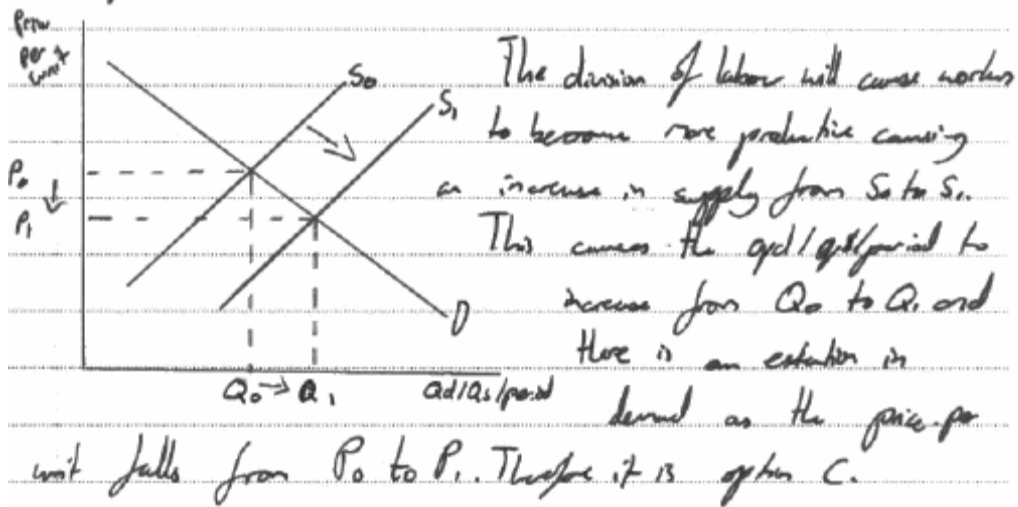 Price
per
unit
S0
S1
P0
P1
D
Q0 → Q1
Qd/Qs/period
The division of labour will cause workers
to become more productive causing
an increase in supply from S0 to S1.
This causes the qd/qs/period to
increase from Q0 to Q1 and
there is an extention in
demand as the price per
unit falls from P0 to P1. Therefore it is option C.